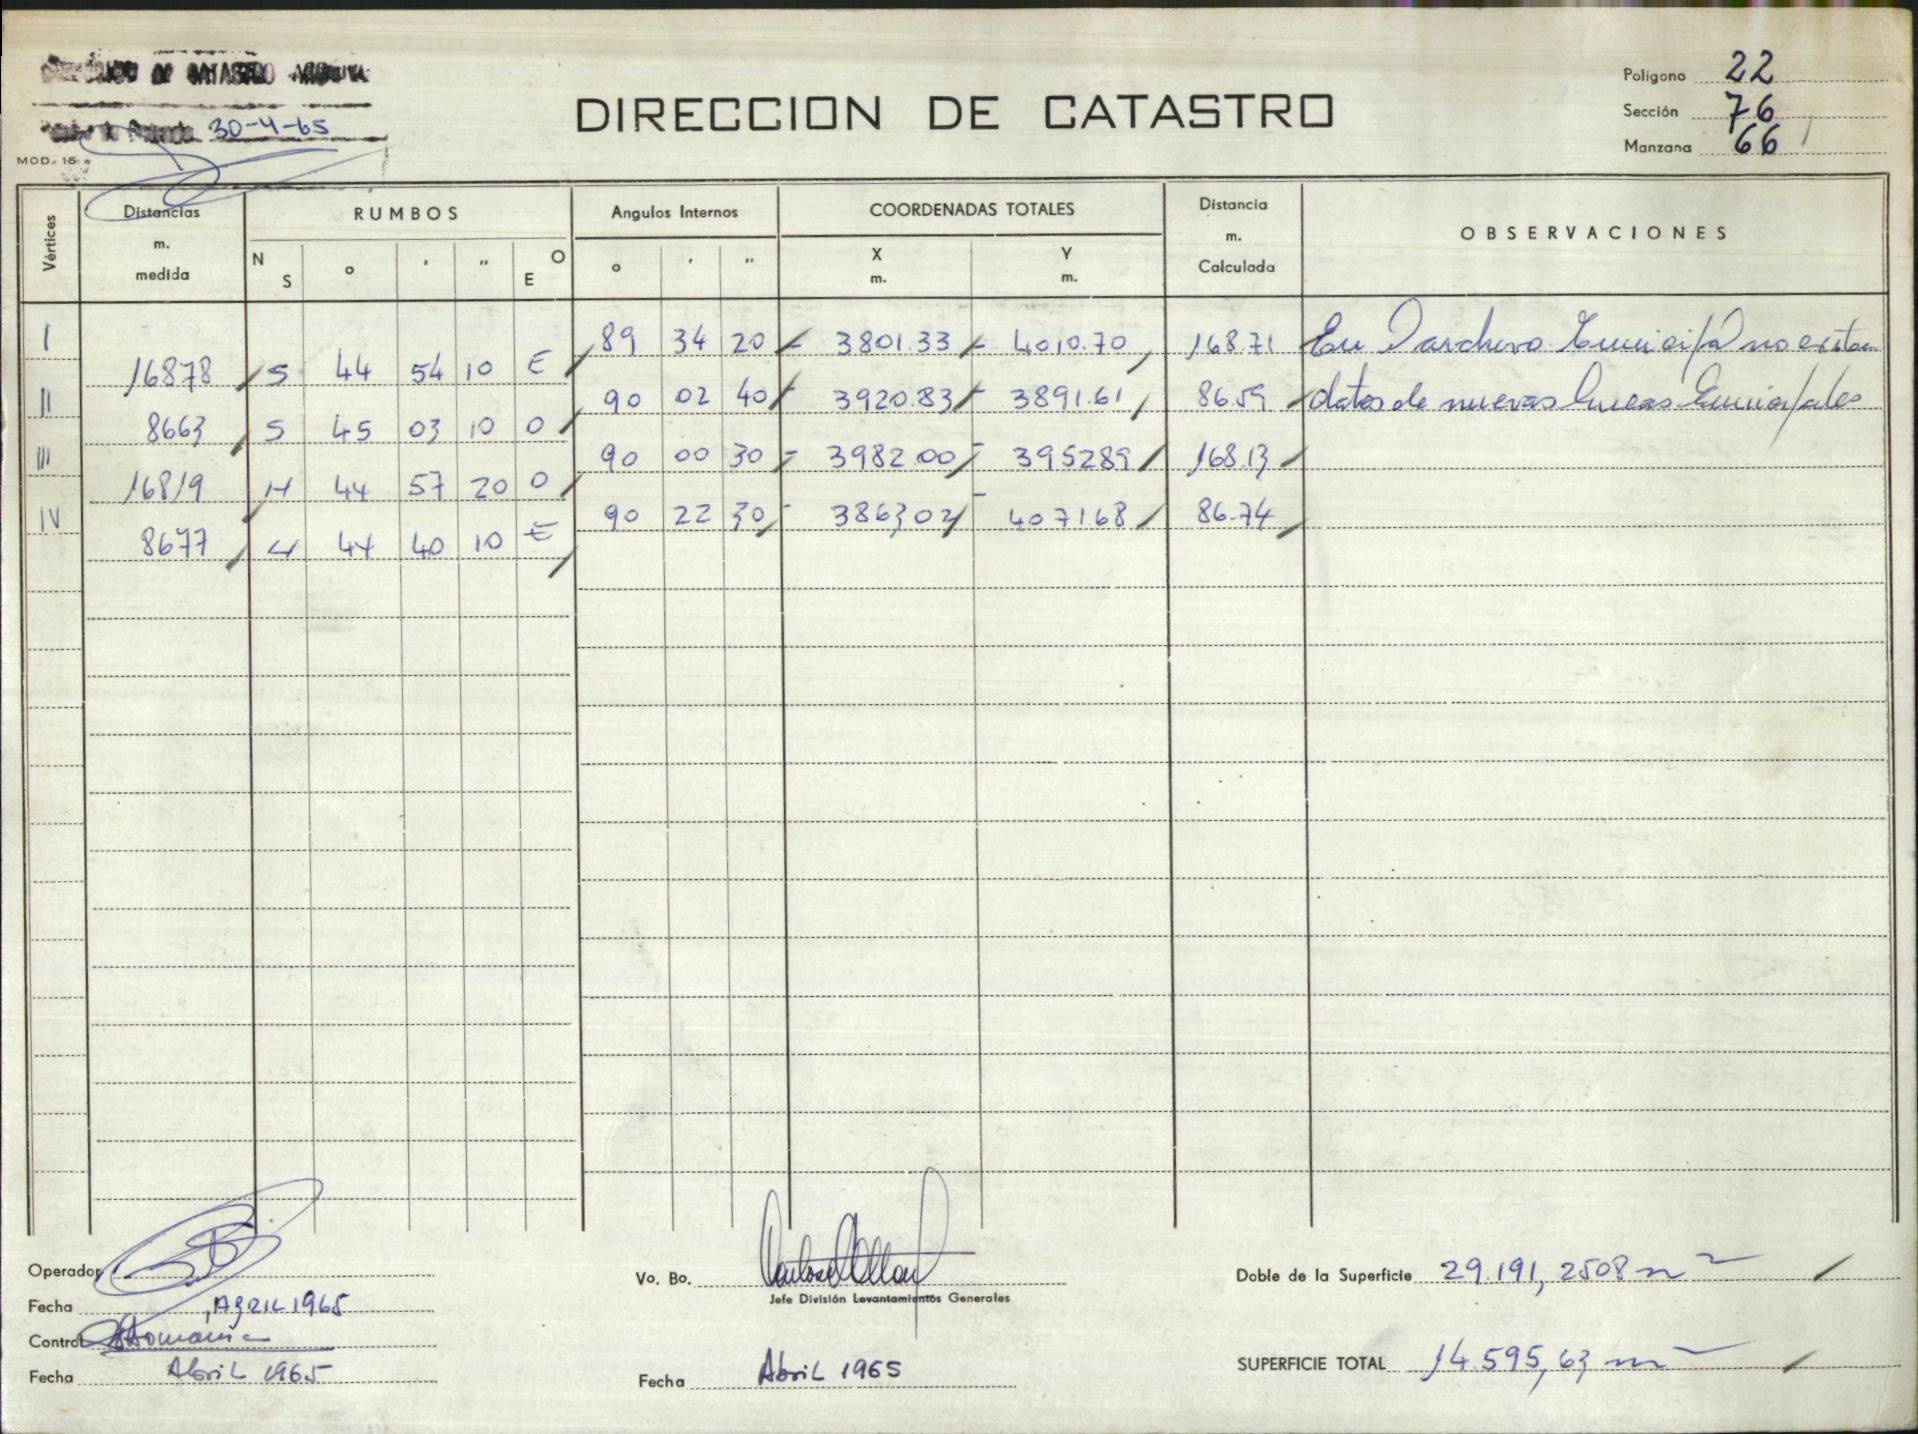 DE CATASTRO
30-4-65
MOD. 15
DIRECCION DE CATASTRO
Polígono 22
Sección 76
Manzana 66
Vértices
Distancias m. medida
RUMBOS
N S ° ' " O E
Angulos Internos
° ' "
COORDENADAS TOTALES
X m. Y m.
Distancia m. Calculada
OBSERVACIONES
I 89 34 20 - 3801.33 - 4010.70 168.71 En Parchivo Municipal no existen
16878 S 44 54 10 E
II 90 02 40 - 3920.83 - 3891.61 86.59 datos de nuevas líneas Municipales
8663 S 45 03 10 O
III 90 00 30 - 3982.00 - 395289 168.13
16819 N 44 57 20 O
IV 90 22 30 - 386302 - 407168 86.74
8677 N 44 40 10 E
Operador
Fecha ABRIL 1965
Control
Fecha Abril 1965
Vo. Bo.
Jefe División Levantamientos Generales
Fecha Abril 1965
Doble de la Superficie 29.191,2508 m2
SUPERFICIE TOTAL 14.595,63 m2